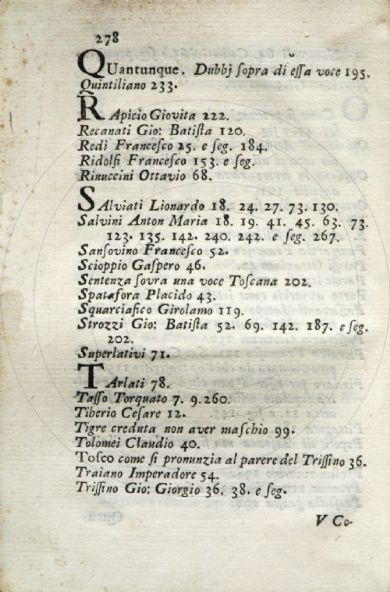 278
QUantunque. Dubbj sopra di essa voce 195.
Quintiliano 233.
RApicio Giovita 222.
Recanati Gio: Batista 120.
Redi Francesco 25. e seg. 184.
Ridolfi Francesco 153. e seg.
Rinuccini Ottavio 68.
SAlviati Lionardo 18. 24. 27. 73. 130.
Salvini Anton Maria 18. 19. 41. 45. 63. 73.
123. 135. 142. 240. 242. e seg. 267.
Sansovino Francesco 52.
Scioppio Gaspero 46.
Sentenza sovra una voce Toscana 202.
Spatafora Placido 43.
Squarciafico Girolamo 119.
Strozzi Gio: Batista 52. 69. 142. 187. e seg.
202.
Superlativi 71.
TArlati 78.
Tasso Torquato 7. 9.260.
Tiberio Cesare 12.
Tigre creduta non aver maschio 99.
Tolomei Claudio 40.
Tosco come si pronunzia al parere del Trissino 36.
Traiano Imperadore 54.
Trissino Gio: Giorgio 36. 38. e seg.
V Co-